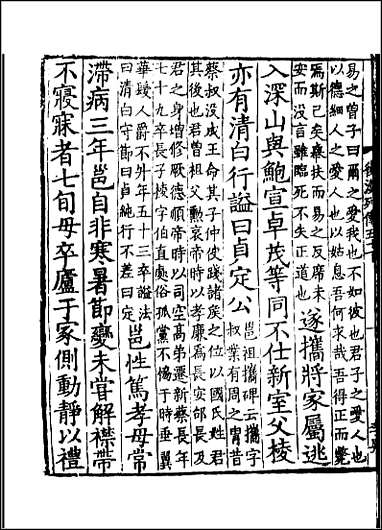 後漢列傳五十
易之曾子曰爾之愛我也不如彼也君子之愛人也
以德細人之愛人也以姑息吾何求哉吾得正而斃
焉斯已矣舉扶而易之反席未
安而没言雖臨死不失正道也
遂攜將家屬逃
入深山與鮑宣卓茂等同不仕新室父棱
亦有清白行謚曰貞定公
邕祖攜碑云攜字
叔業有周之胄昔
蔡叔没成王命其子仲使踐諸矦之位以國氏姓君
其後也君曾祖父勳哀帝時以孝廉爲長安郃長及
君之身增修厥德順帝時以司空高弟遷新蔡長年
七十九卒長子棱字伯直處俗孤黨不協于時垂翼
華髮人爵不升年五十三卒謚法
曰清白守節曰貞純行不差曰定
邕性篤孝母常
滯病三年邕自非寒暑節變未甞解襟帶
不寢寐者七旬母卒廬于冢側動静以禮